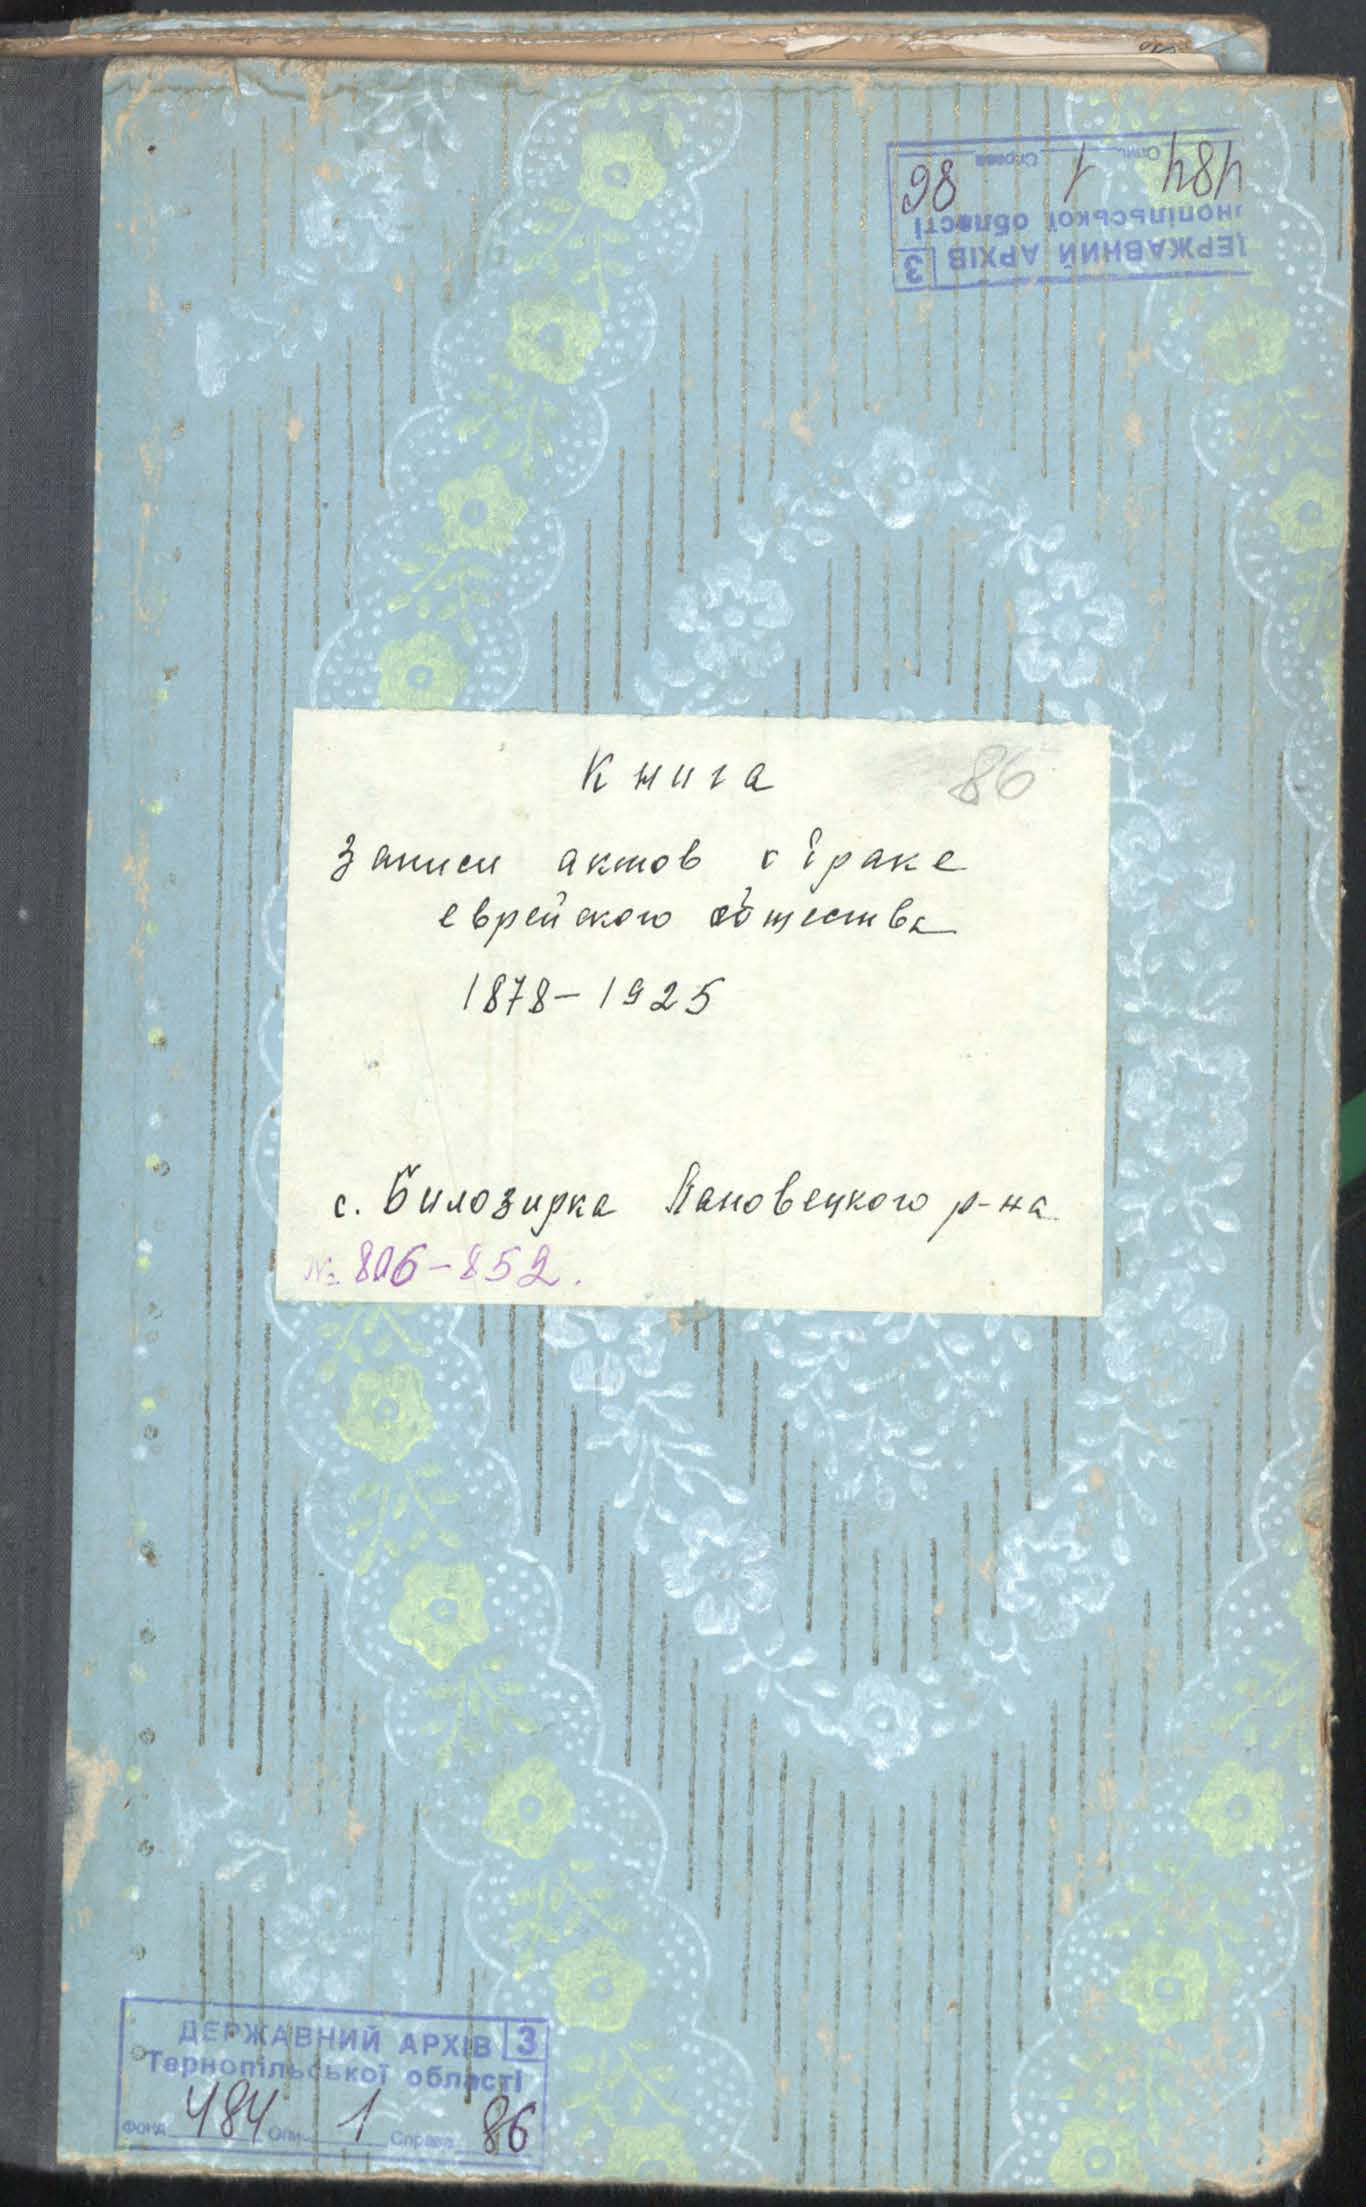 484 1 86
Опис Справа
нопільської області
ДЕРЖАВНИЙ АРХІВ 3
Книга 86
Записи актов о браке
еврейского общества
1878-1925
с. Билозирка Лановецкого р-на
№ 806-852.
ДЕРЖАВНИЙ АРХІВ 3
Тернопільської області
Фонд 484 Опис 1 Справа 86